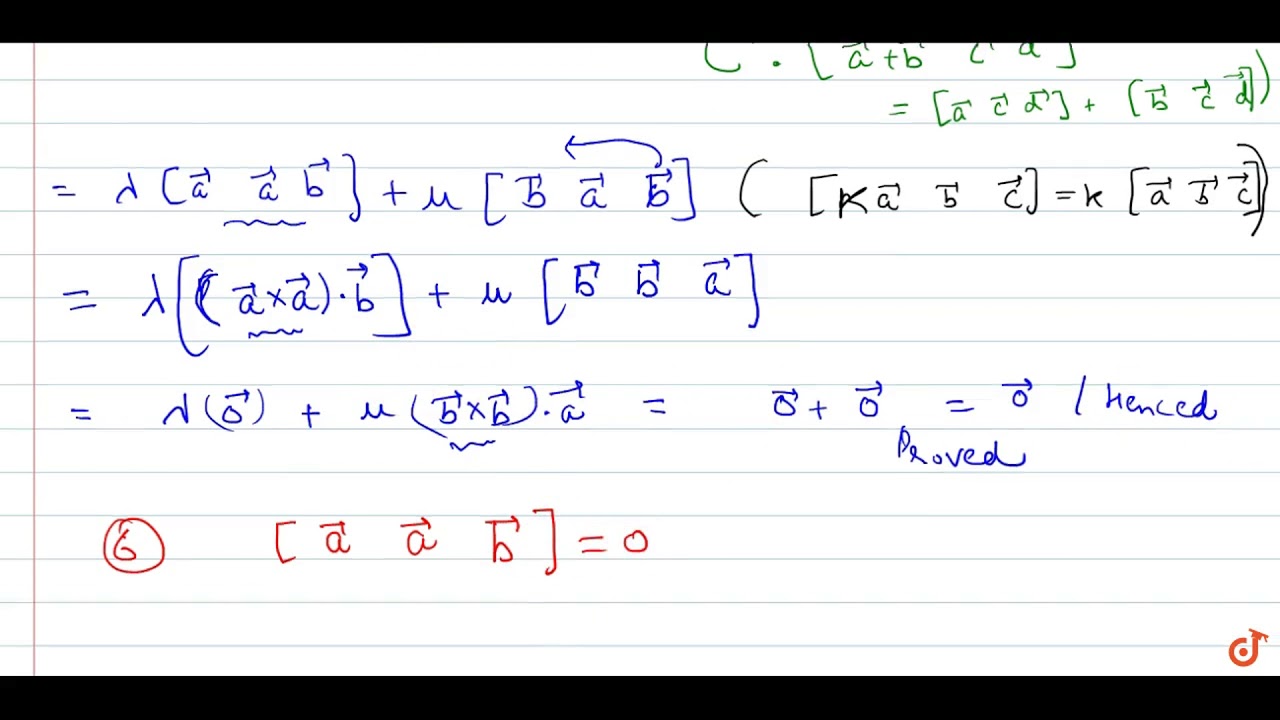 ( ∵ [ a⃗+b⃗ c⃗ d⃗ ]
= [a⃗ c⃗ d⃗] + [b⃗ c⃗ d⃗] )
= λ [a⃗ a⃗ b⃗] + μ [b⃗ a⃗ b⃗] ( [K a⃗ b⃗ c⃗] = K [a⃗ b⃗ c⃗] )
= λ [(a⃗×a⃗)·b⃗] + μ [b⃗ b⃗ a⃗]
= λ(0⃗) + μ(b⃗×b⃗)·a⃗ = 0⃗ + 0⃗ = 0⃗ / Henced
Proved
⑥ [a⃗ a⃗ b⃗] = 0